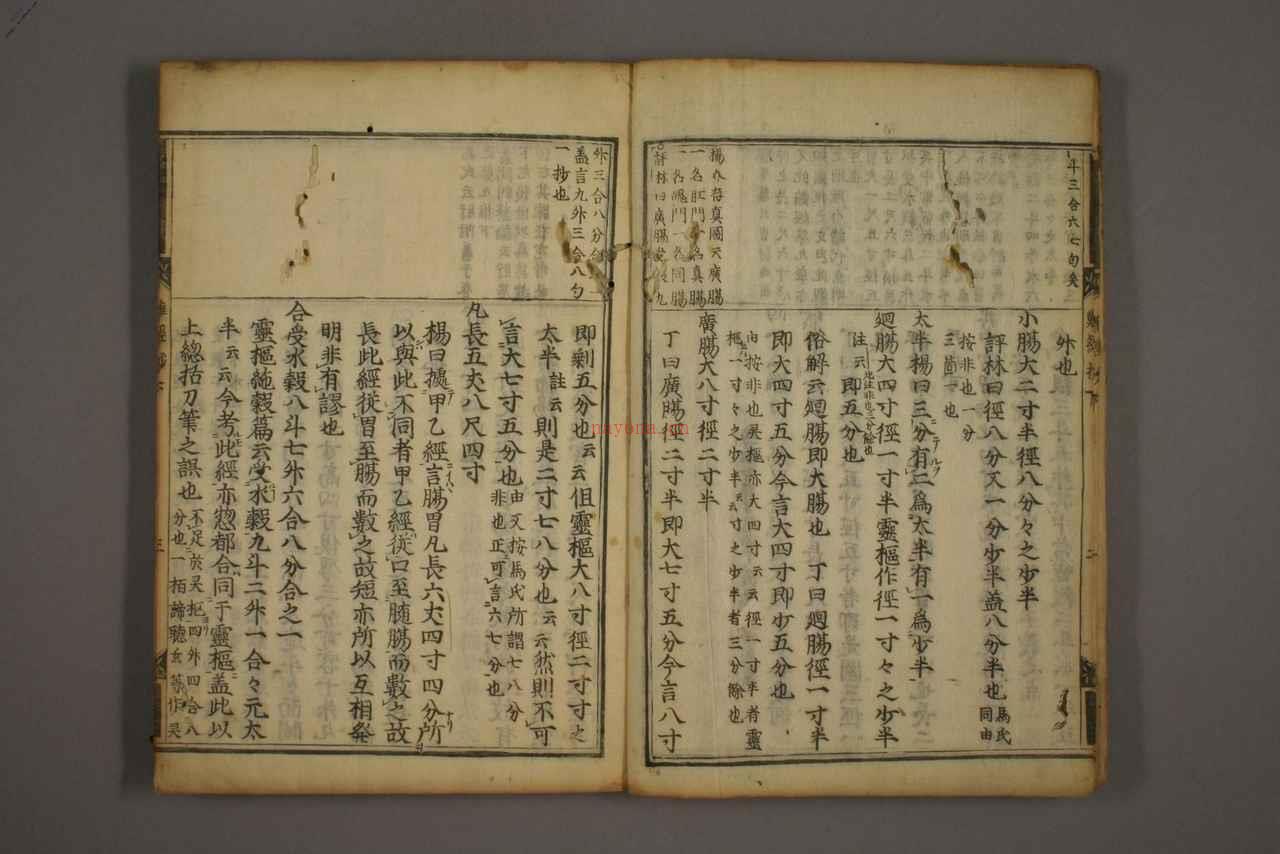 斗三合六七勺矣
楊介存真圖云廣腸
一名肛門一名真腸
一名魄門一名同腸
評林曰廣腸
外也
小腸大二寸半徑八分々之少半
評林曰徑八分又一分少半盖八分半也馬氏同由
按非也一分
三箇一也
太半楊曰三分有二爲太半有一爲少半
廻腸大四寸徑一寸半靈樞作徑一寸々之少半
註云即五分也
俗解云廻腸即大腸也丁曰廻腸徑一寸半
即大四寸五分今言大四寸即少五分也
由按非也吴樞亦大四寸云云徑一寸半者靈
樞一寸々之少半云云寸之少半者三分餘也
廣腸大八寸徑二寸半
丁曰廣腸徑二寸半即大七寸五分今言八寸
外三合八分合
盖言九外三合八勺
一抄也
即剩五分也云云但靈樞大八寸徑二寸寸之
太半註云則是二寸七八分也云云然則不可
言大七寸五分也由又按馬氏所謂七八分
非也正可言六七分也
凡長五丈八尺四寸
楊曰據甲乙經言腸胃凡長六丈四寸四分所
以與此不同者甲乙經從口至腸而數之故
長此經從胃至腸而數之故短亦所以互相發
明非有謬也
合受水穀八斗七外六合八分合之一
靈樞䐈穀篇云受水穀九斗二外一合々元太
半云云今考此經亦惣都合同于靈樞盖此以
上總括刀筆之誤也不足於吴樞四外四合八
分也一栢諦聽云
nayona.cn